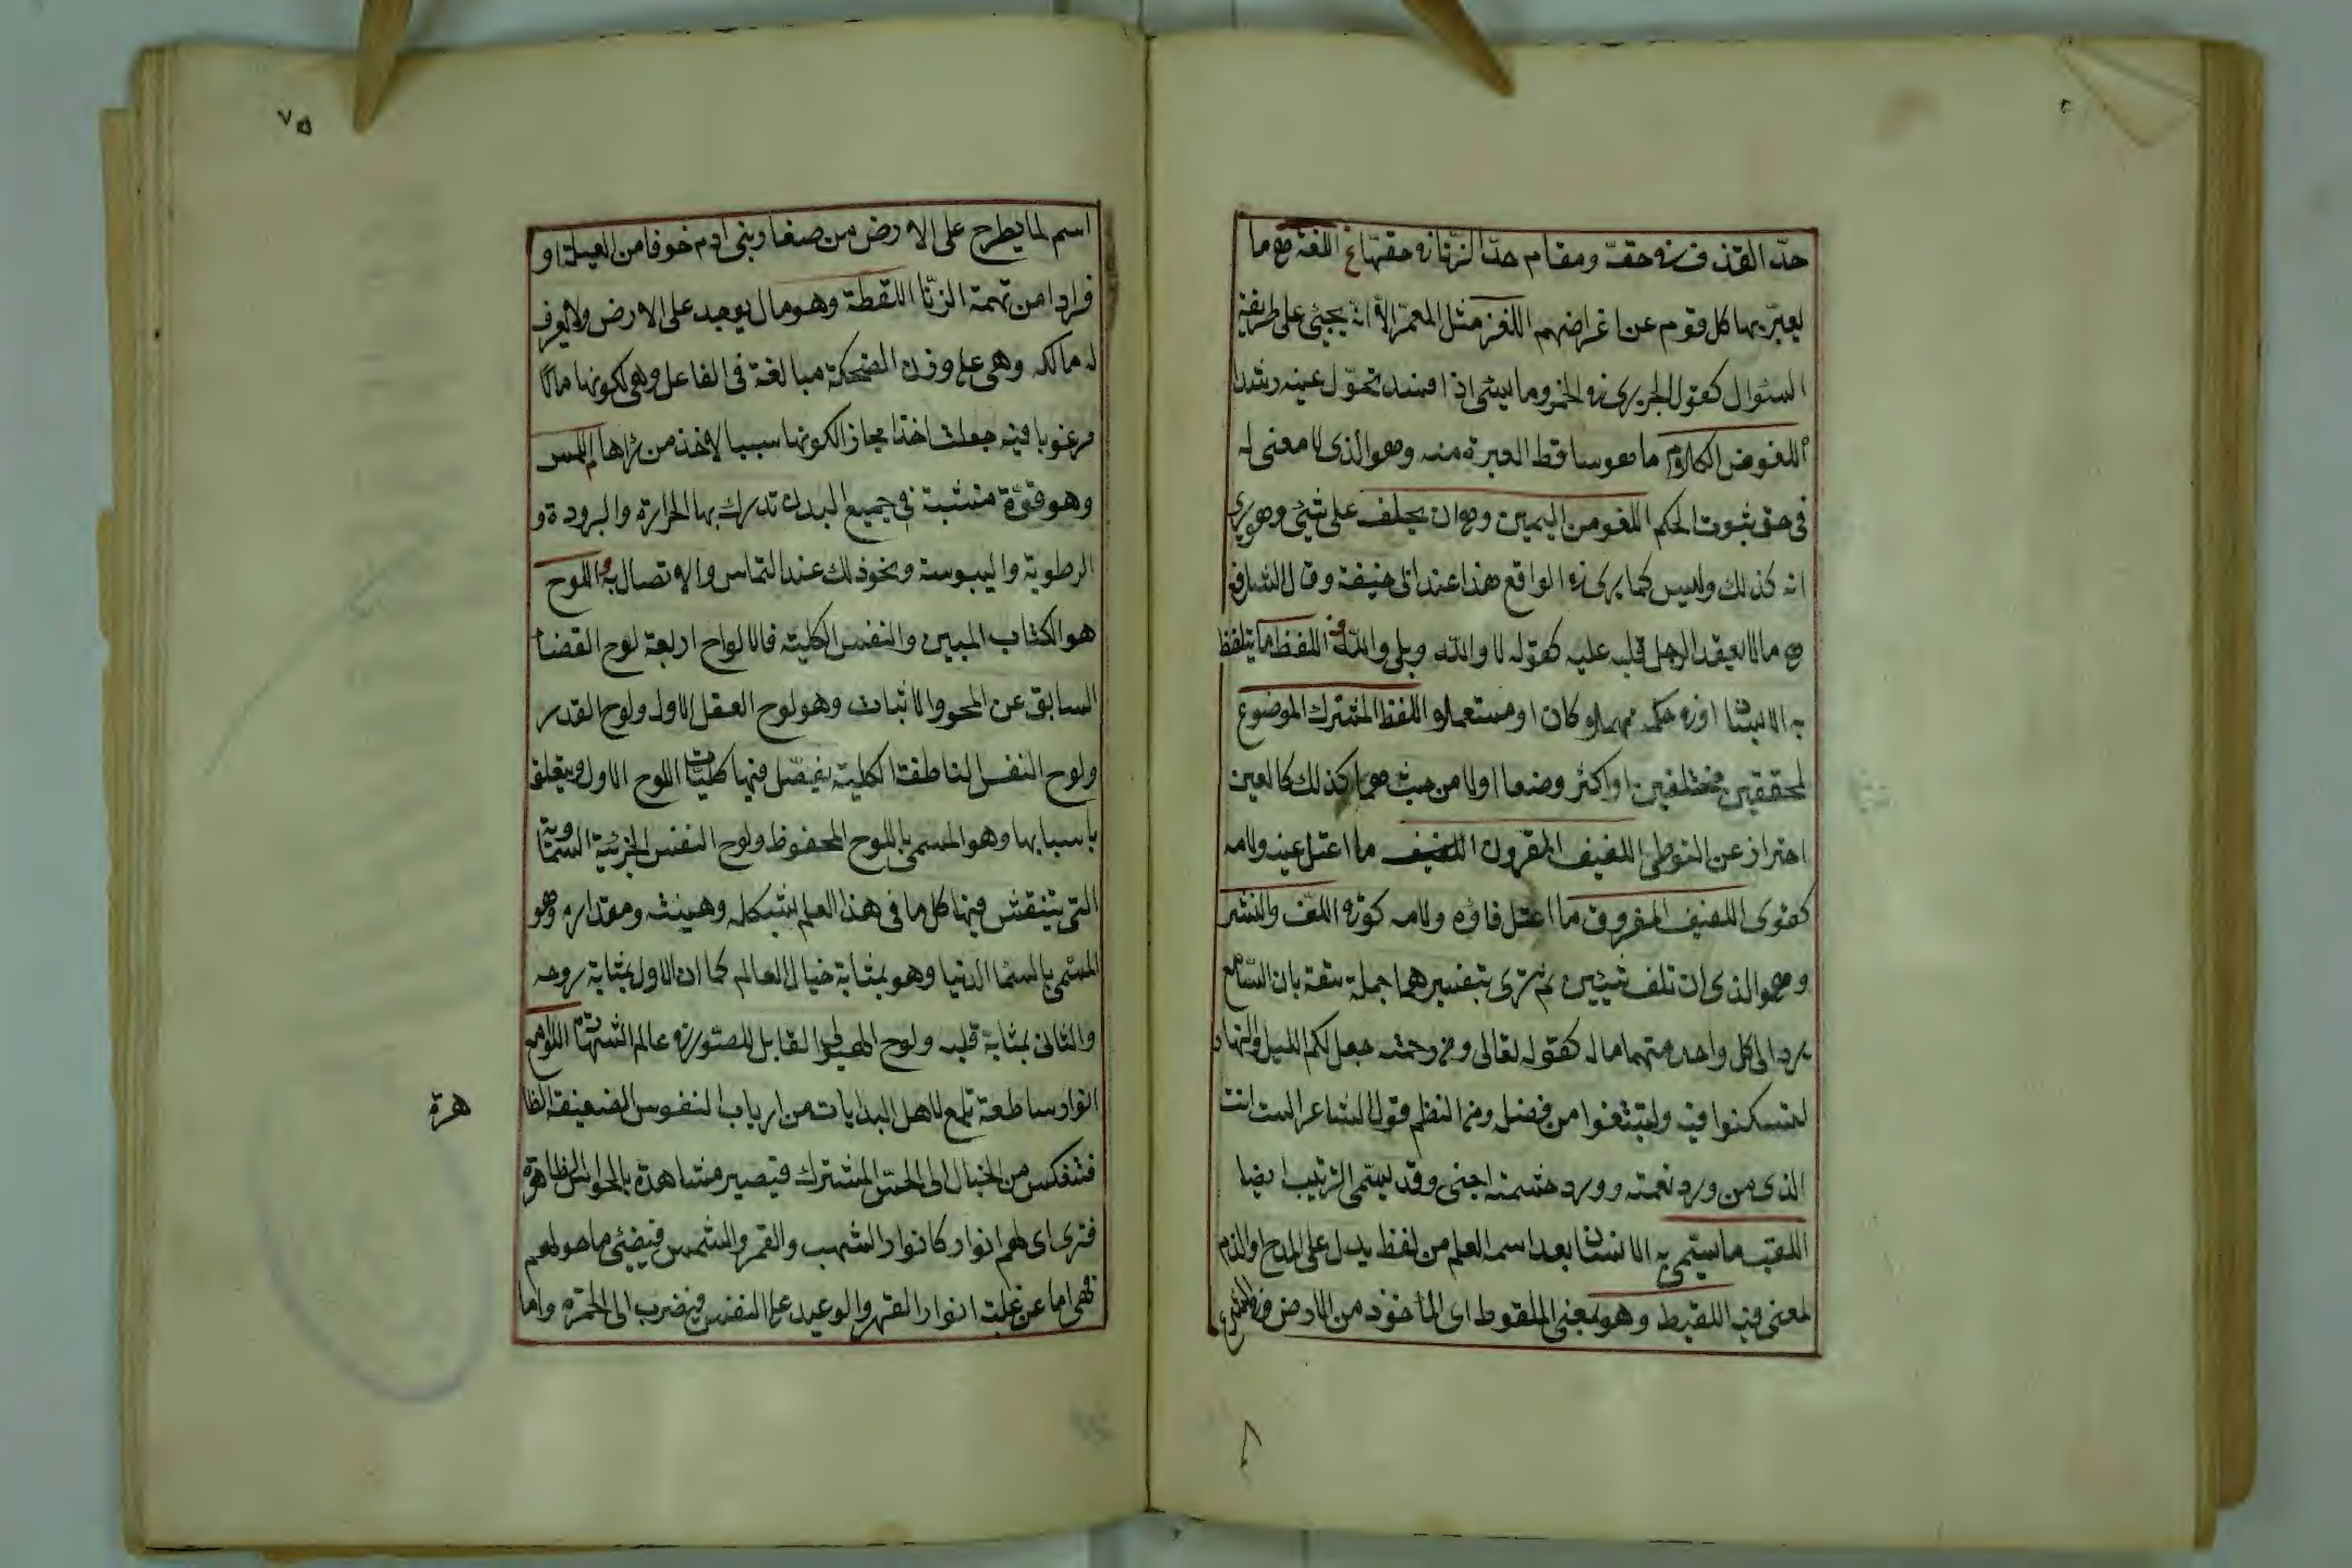 حدّ القذف في حقه ومقام حدّ الزنا في حقها اللغة هي ما
يعبّر بها كل قوم عن اغراضهم اللغز مثل المعمّا الّا انّه يجيئ على طريقة
السئوال كقول الحريري في الخمر وما شيئ اذا افسد تحوّل غيه رشدا
اللغو من الكلام ما هو ساقط العبرة منه وهو الذي لا معنى له
في حق ثبوت الحكم اللغو من اليمين وهو ان يحلف على شيئ وهو يرى
انه كذلك وليس كما يرى في الواقع هذا عند ابي حنيفة وقال الشافعي
هي ما لا يعقد الرجل قلبه عليه كقوله لا والله وبلى والله اللفظ ما يتلفظ
به الانسان او في حكمه مهملا كان او مستعملا و اللفظ المشترك الموضوع
لحقيقتين مختلفين او اكثر وضعا اولا من حيث هما كذلك كالعين
احتراز عن المتوطي اللفيف المقرون اللفيف ما اعتل عينه ولامه
كقوى اللفيف المفروق ما اعتل فاؤه ولامه كوقى اللف والنشر
وهو الذي ان تلف شيئين ثم ترى بتفسيرهما جملة ثقة بان السّامع
يردّ الى كل واحد منهما ما له كقوله تعالى ومن رحمته جعل لكم الليل والنهار
لتسكنوا فيه ولتبتغوا من فضله ومن النظم قول الشاعر الست انت
الذي من ورد نعمته وورد حشمته اجنى وقد يسمّى الترتيب ايضا
اللقب ما يسمّى به الانسان بعد اسمه العلم من لفظ يدل على المدح او الذم
لمعنى فيه اللقيط وهو بمعنى الملقوط اى المأخوذ من الارض وفي الشرع
٧٥
اسم لما يطرح على الارض من صغار بني ادم خوفا من العيلة او
فرارا من تهمة الزنّا اللقطة وهو مال يوجد على الارض ولا يعرف
له مالك وهي على وزن الضحكة مبالغة في الفاعل وهي لكونها مالا
مرغوبا فيه جعلت اخذا مجازا لكونها سببا لاخذ من رآها اللمس
وهو قوّة منبثة في جميع البدن تدرك بها الحرارة والبرودة و
الرطوبة واليبوسة ونحو ذلك عند التماس والاتصال به اللوح
هو الكتاب المبين والنفس الكلية فالالواح اربعة لوح القضا
السابق عن المحو والاثبات وهو لوح العقل الاول ولوح القدر
ولوح النفس الناطقة الكلية يفصّل فيها كليات اللوح الاول ويتعلق
باسبابها وهو المسمى باللوح المحفوظ ولوح النفس الجزئية السماوية
التي ينتقش فيها كل ما في هذا العلم بشكله وهيئته ومقداره وهو
المسمى بالسما الدنيا وهو بمثابة خيال العالم كما ان الاول بمثابة روحه
والثاني بمثابة قلبه ولوح الهيولى القابل للصّور في عالم الشهادة اللوامع
انوار ساطعة تلمع لاهل البدايات من ارباب النفوس الضعيفة الظا
هرة
فتنعكس من الخيال الى الحسّ المشترك فيصير مشاهدة بالحواس الظاهرة
فترى اى لهم انوار كانوار الشهب والقمر والشمس فيضيئ ما حولهم
فهي اما عن غلبة انوار القهر والوعيد على النفس فيضرب الى الحمرة واما